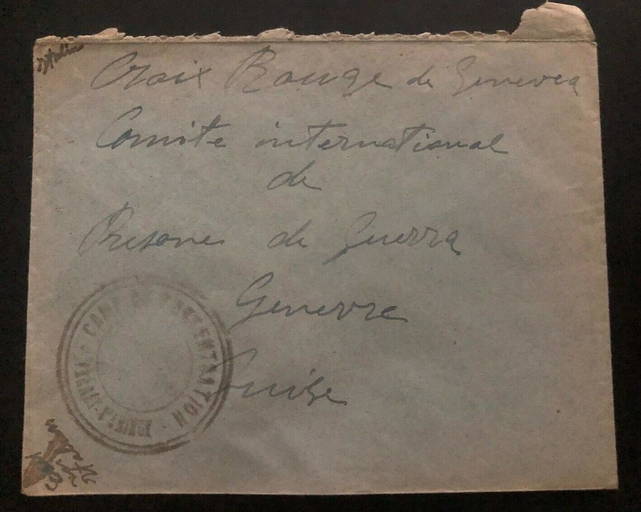 Italia
Croix Rouge de Genevea
Comite international
de
Presones de Guerra
Genevre
Suise
CAMP DE CONCENTRATION